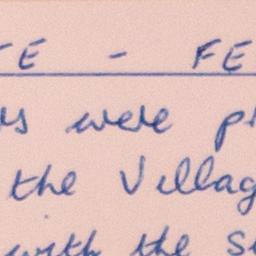 TE - FE
rs were pr
the Villag
with the s